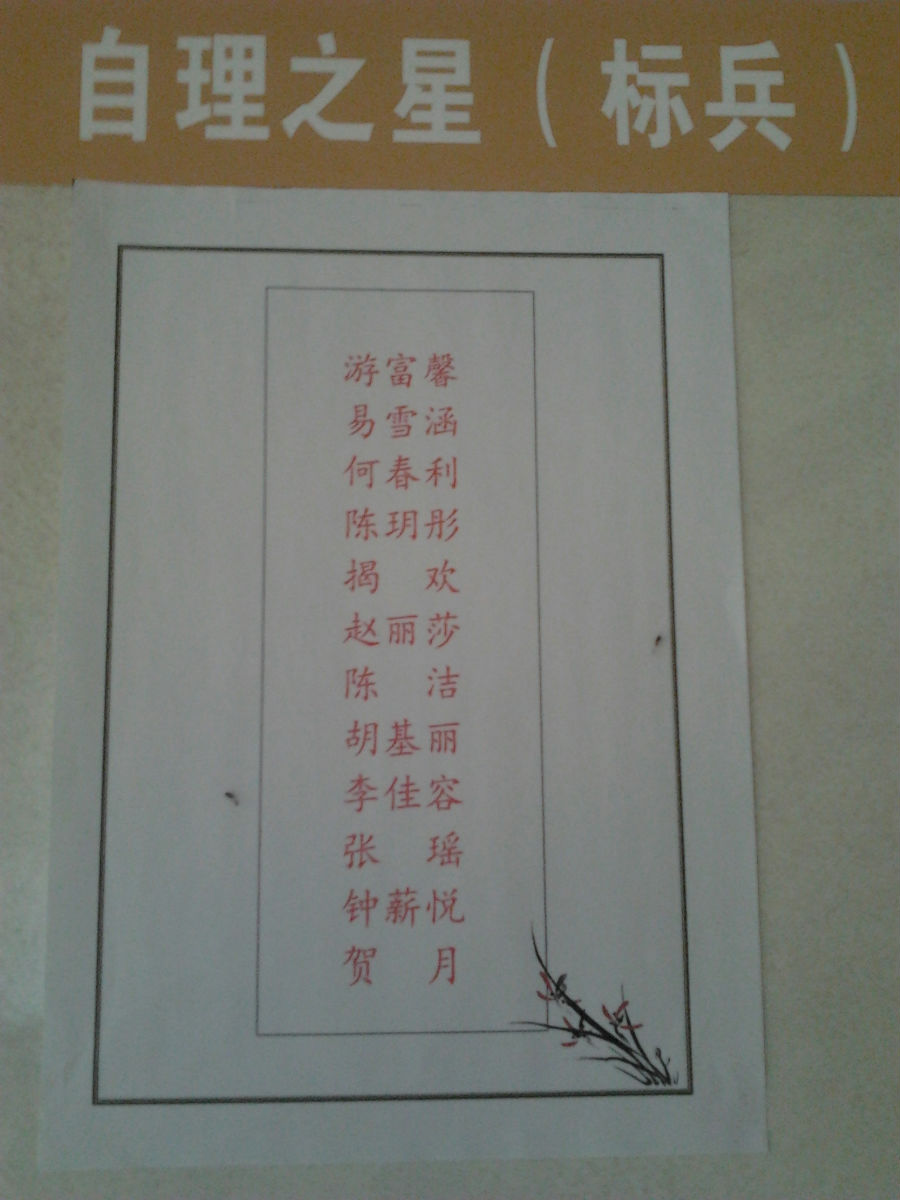 自理之星（标兵）
游富馨
易雪涵
何春利
陈玥彤
揭 欢
赵丽莎
陈 洁
胡基丽
李佳容
张 瑶
钟薪悦
贺 月